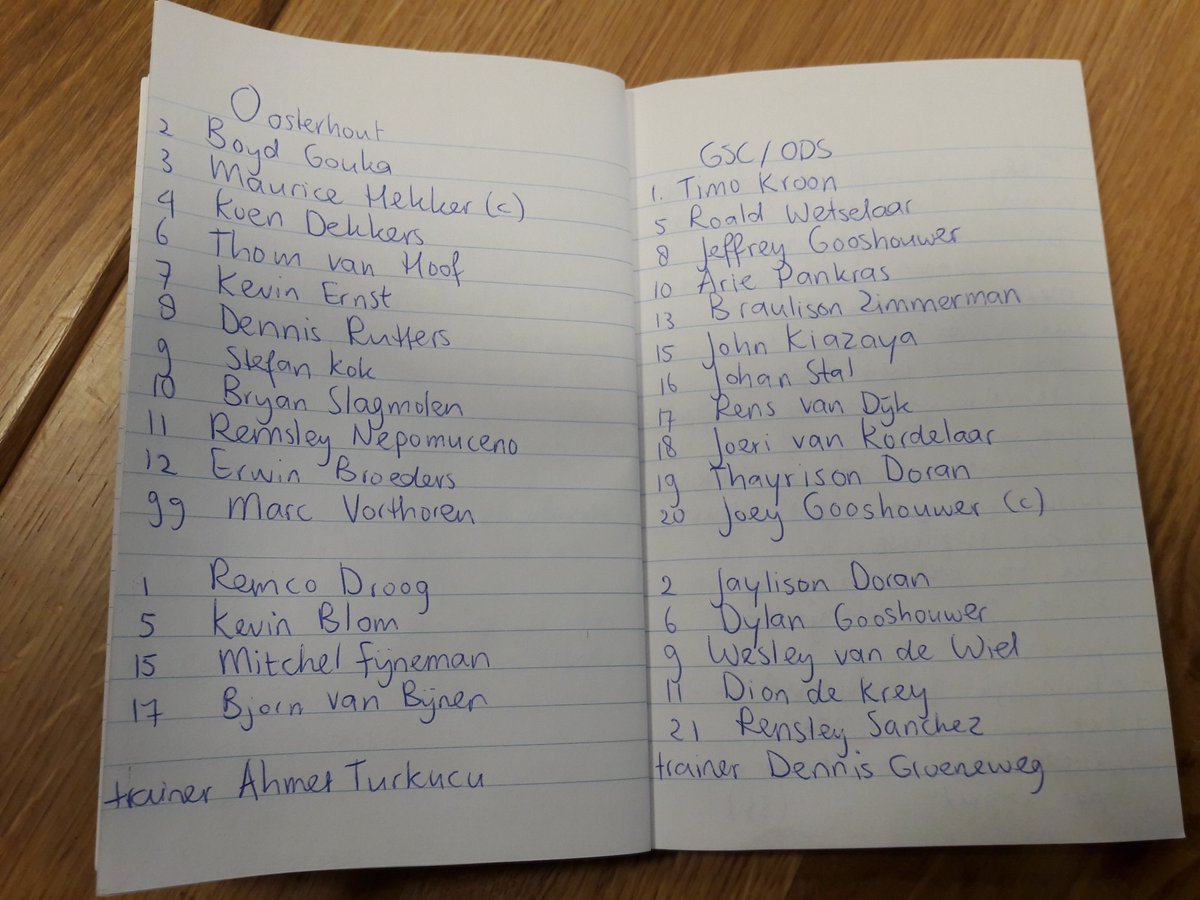 Oosterhout
2 Boyd Gouka
3 Maurice Hekker (c)
4 Koen Dekkers
6 Thom van Hoof
7 Kevin Ernst
8 Dennis Rutters
9 Stefan Kok
10 Bryan Slagmolen
11 Remsley Nepomuceno
12 Erwin Broeders
99 Marc Vorthoren
1 Remco Droog
5 Kevin Blom
15 Mitchel Fijneman
17 Bjorn van Bijnen
trainer Ahmet Turkucu
GSC/ODS
1. Timo Kroon
5 Roald Wetselaar
8 Jeffrey Gooshouwer
10 Arie Pankras
13 Braulison Zimmerman
15 John Kiazaya
16 Johan Stal
17 Rens van Dijk
18 Joeri van Kordelaar
19 Thayrison Doran
20 Joey Gooshouwer (c)
2 Jaylison Doran
6 Dylan Gooshouwer
9 Wesley van de Wiel
11 Dion de Krey
21 Rensley Sanchez
trainer Dennis Groeneweg